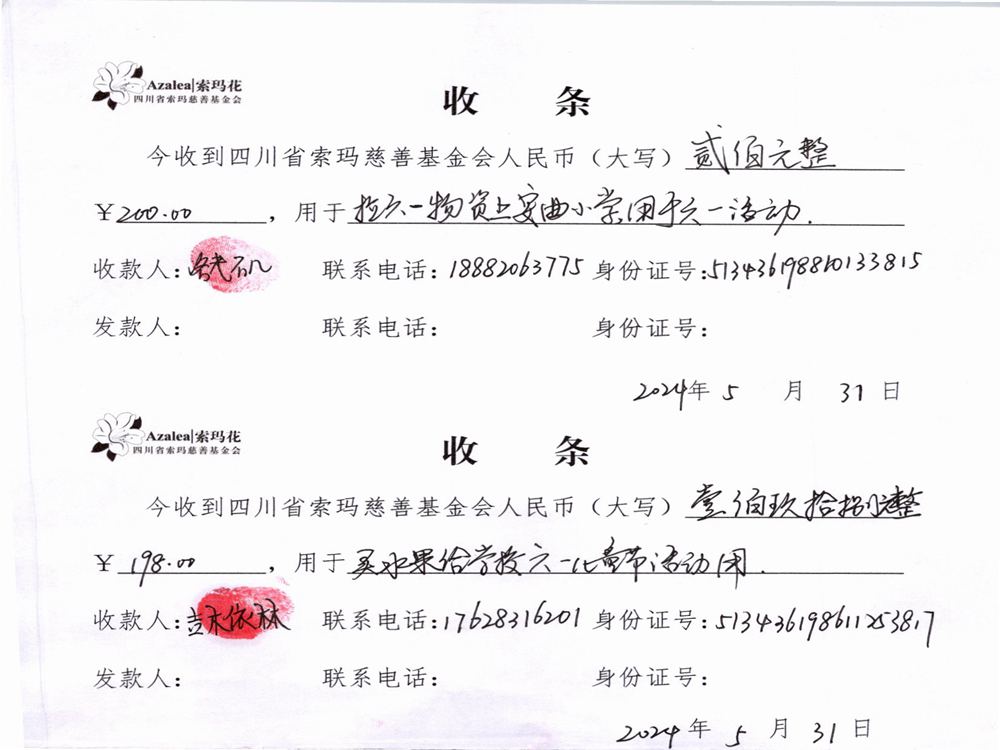 Azalea|索玛花
四川省索玛慈善基金会
收 条
今收到四川省索玛慈善基金会人民币（大写）贰佰元整
¥200.00，用于捡六一物资上安曲小学用于六一活动.
收款人: 联系电话:18882063775 身份证号:513436198810133815
发款人: 联系电话: 身份证号:
2024年 5 月 31 日
Azalea|索玛花
四川省索玛慈善基金会
收 条
今收到四川省索玛慈善基金会人民币（大写）壹佰玖拾捌元整
¥198.00，用于买水果给学校六一儿童节活动用.
收款人:吉木依林 联系电话:17628316201 身份证号:513436198611253817
发款人: 联系电话: 身份证号:
2024 年 5 月 31 日